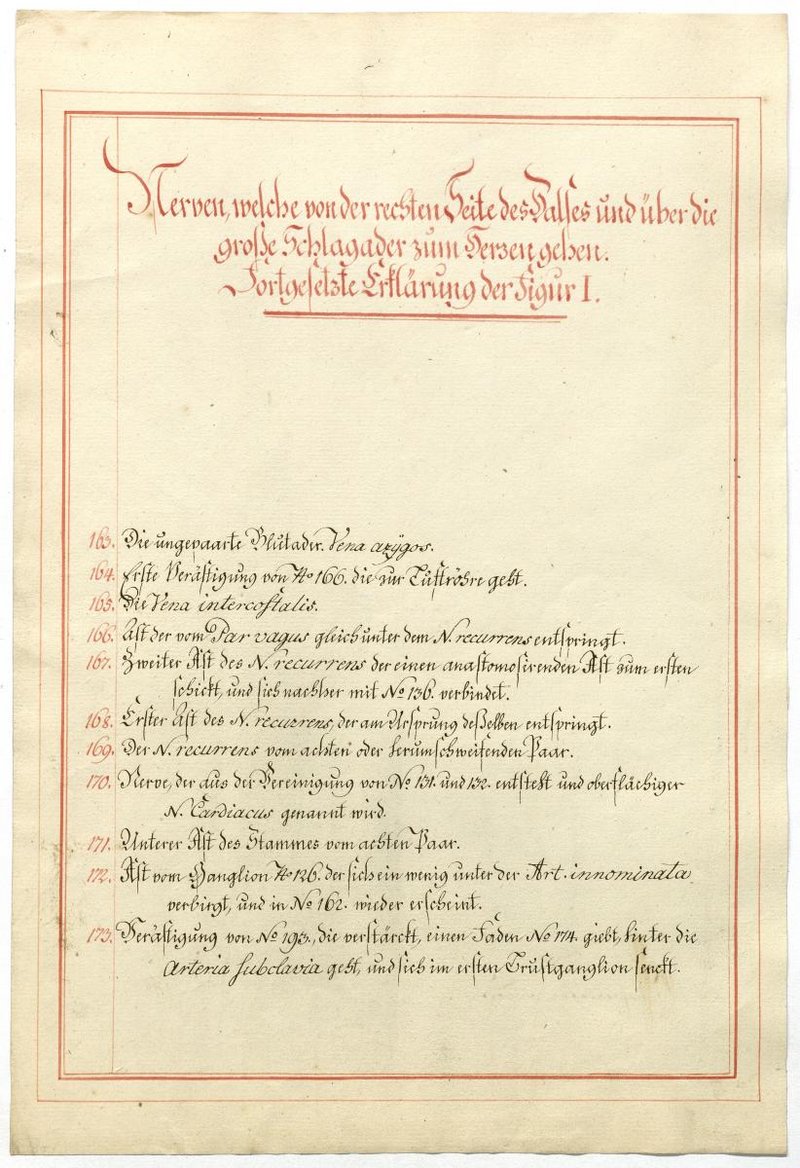 Nerven, welche von der rechten Seite des Halses und über die
große Schlagader zum Herzen gehen.
Fortgesetzte Erklärung der Figur I.
163. Die ungepaarte Blutader. Vena azÿgos.
164. Erste Verästigung von No 166. die zur Luftröhre geht.
165. Die Vena intercostalis.
166. Ast der vom Par vagus gleich unter dem N. recurrens entspringt.
167. Zweiter Ast des N. recurrens der einen anastomosirenden Ast zum ersten
schickt, und sich nachher mit No 136. verbindet.
168. Erster Ast des N. recurrens, der am Ursprung deßelben entspringt.
169. Der N. recurrens vom achten oder herumschweifenden Paar.
170. Nerve, der aus der Vereinigung von No 131. und 132. entsteht und oberflächiger
N. Cardiacus genannt wird.
171. Unterer Ast des Stammes vom achten Paar.
172. Ast vom Ganglion No 126. der sich ein wenig unter der Art. innominata
verbirgt, und in No 162. wieder erscheint.
173. Verästigung von No 193. die verstärckt, einen Faden No 174. giebt, hinter die
Arteria subclavia geht, und sich im ersten Brustganglion senckt.